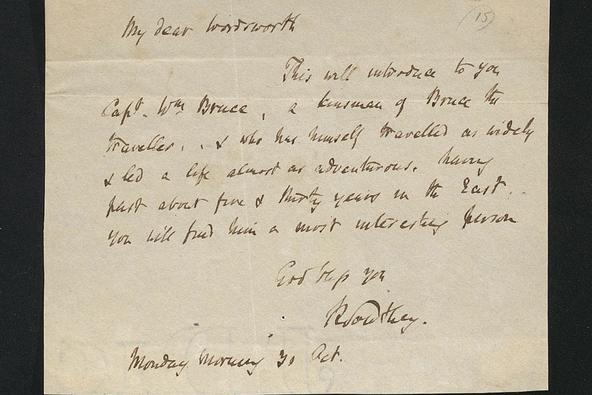 (15)
My dear Wordsworth
This will introduce to you
Capt. Wm Bruce, a kinsman of Bruce the
traveller, & who has himself travelled as widely
& led a life almost as adventurous. having
past about five & thirty years in the East.
You will find him a most interesting person
God bless you
RSouthey.
Monday Morning 30 Oct.